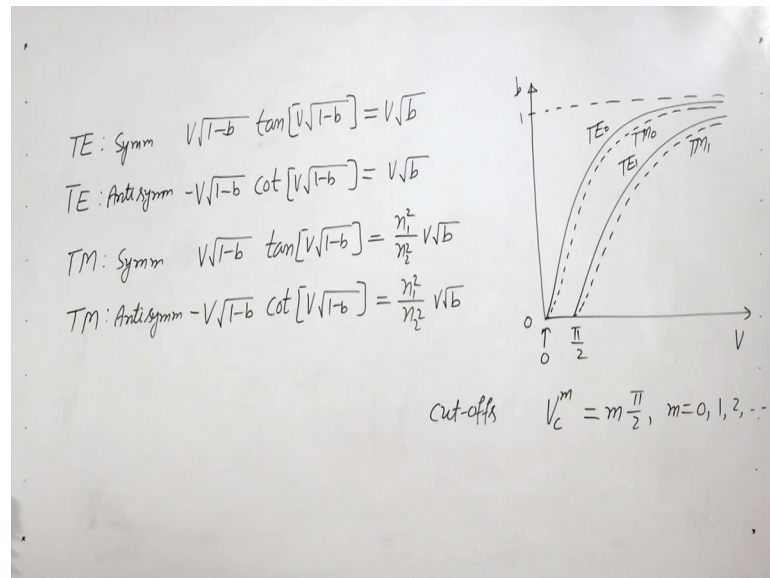 TE: Symm V√1-b tan[V√1-b] = V√b
TE: Antisymm -V√1-b cot[V√1-b] = V√b
TM: Symm V√1-b tan[V√1-b] = n₁²/n₂² V√b
TM: Antisymm -V√1-b cot[V√1-b] = n₁²/n₂² V√b
b
1
TE₀
TM₀
TE₁
TM₁
0
↑
0
π/2
V
cut-offs V_c^m = m π/2, m=0, 1, 2, ...